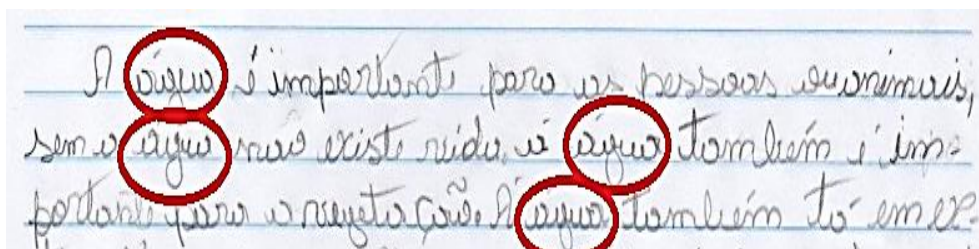 A água é importante para as pessoas e animais,
sem a água não existe vida. a água também é im-
portante para a vegetação. A água também tá em ex